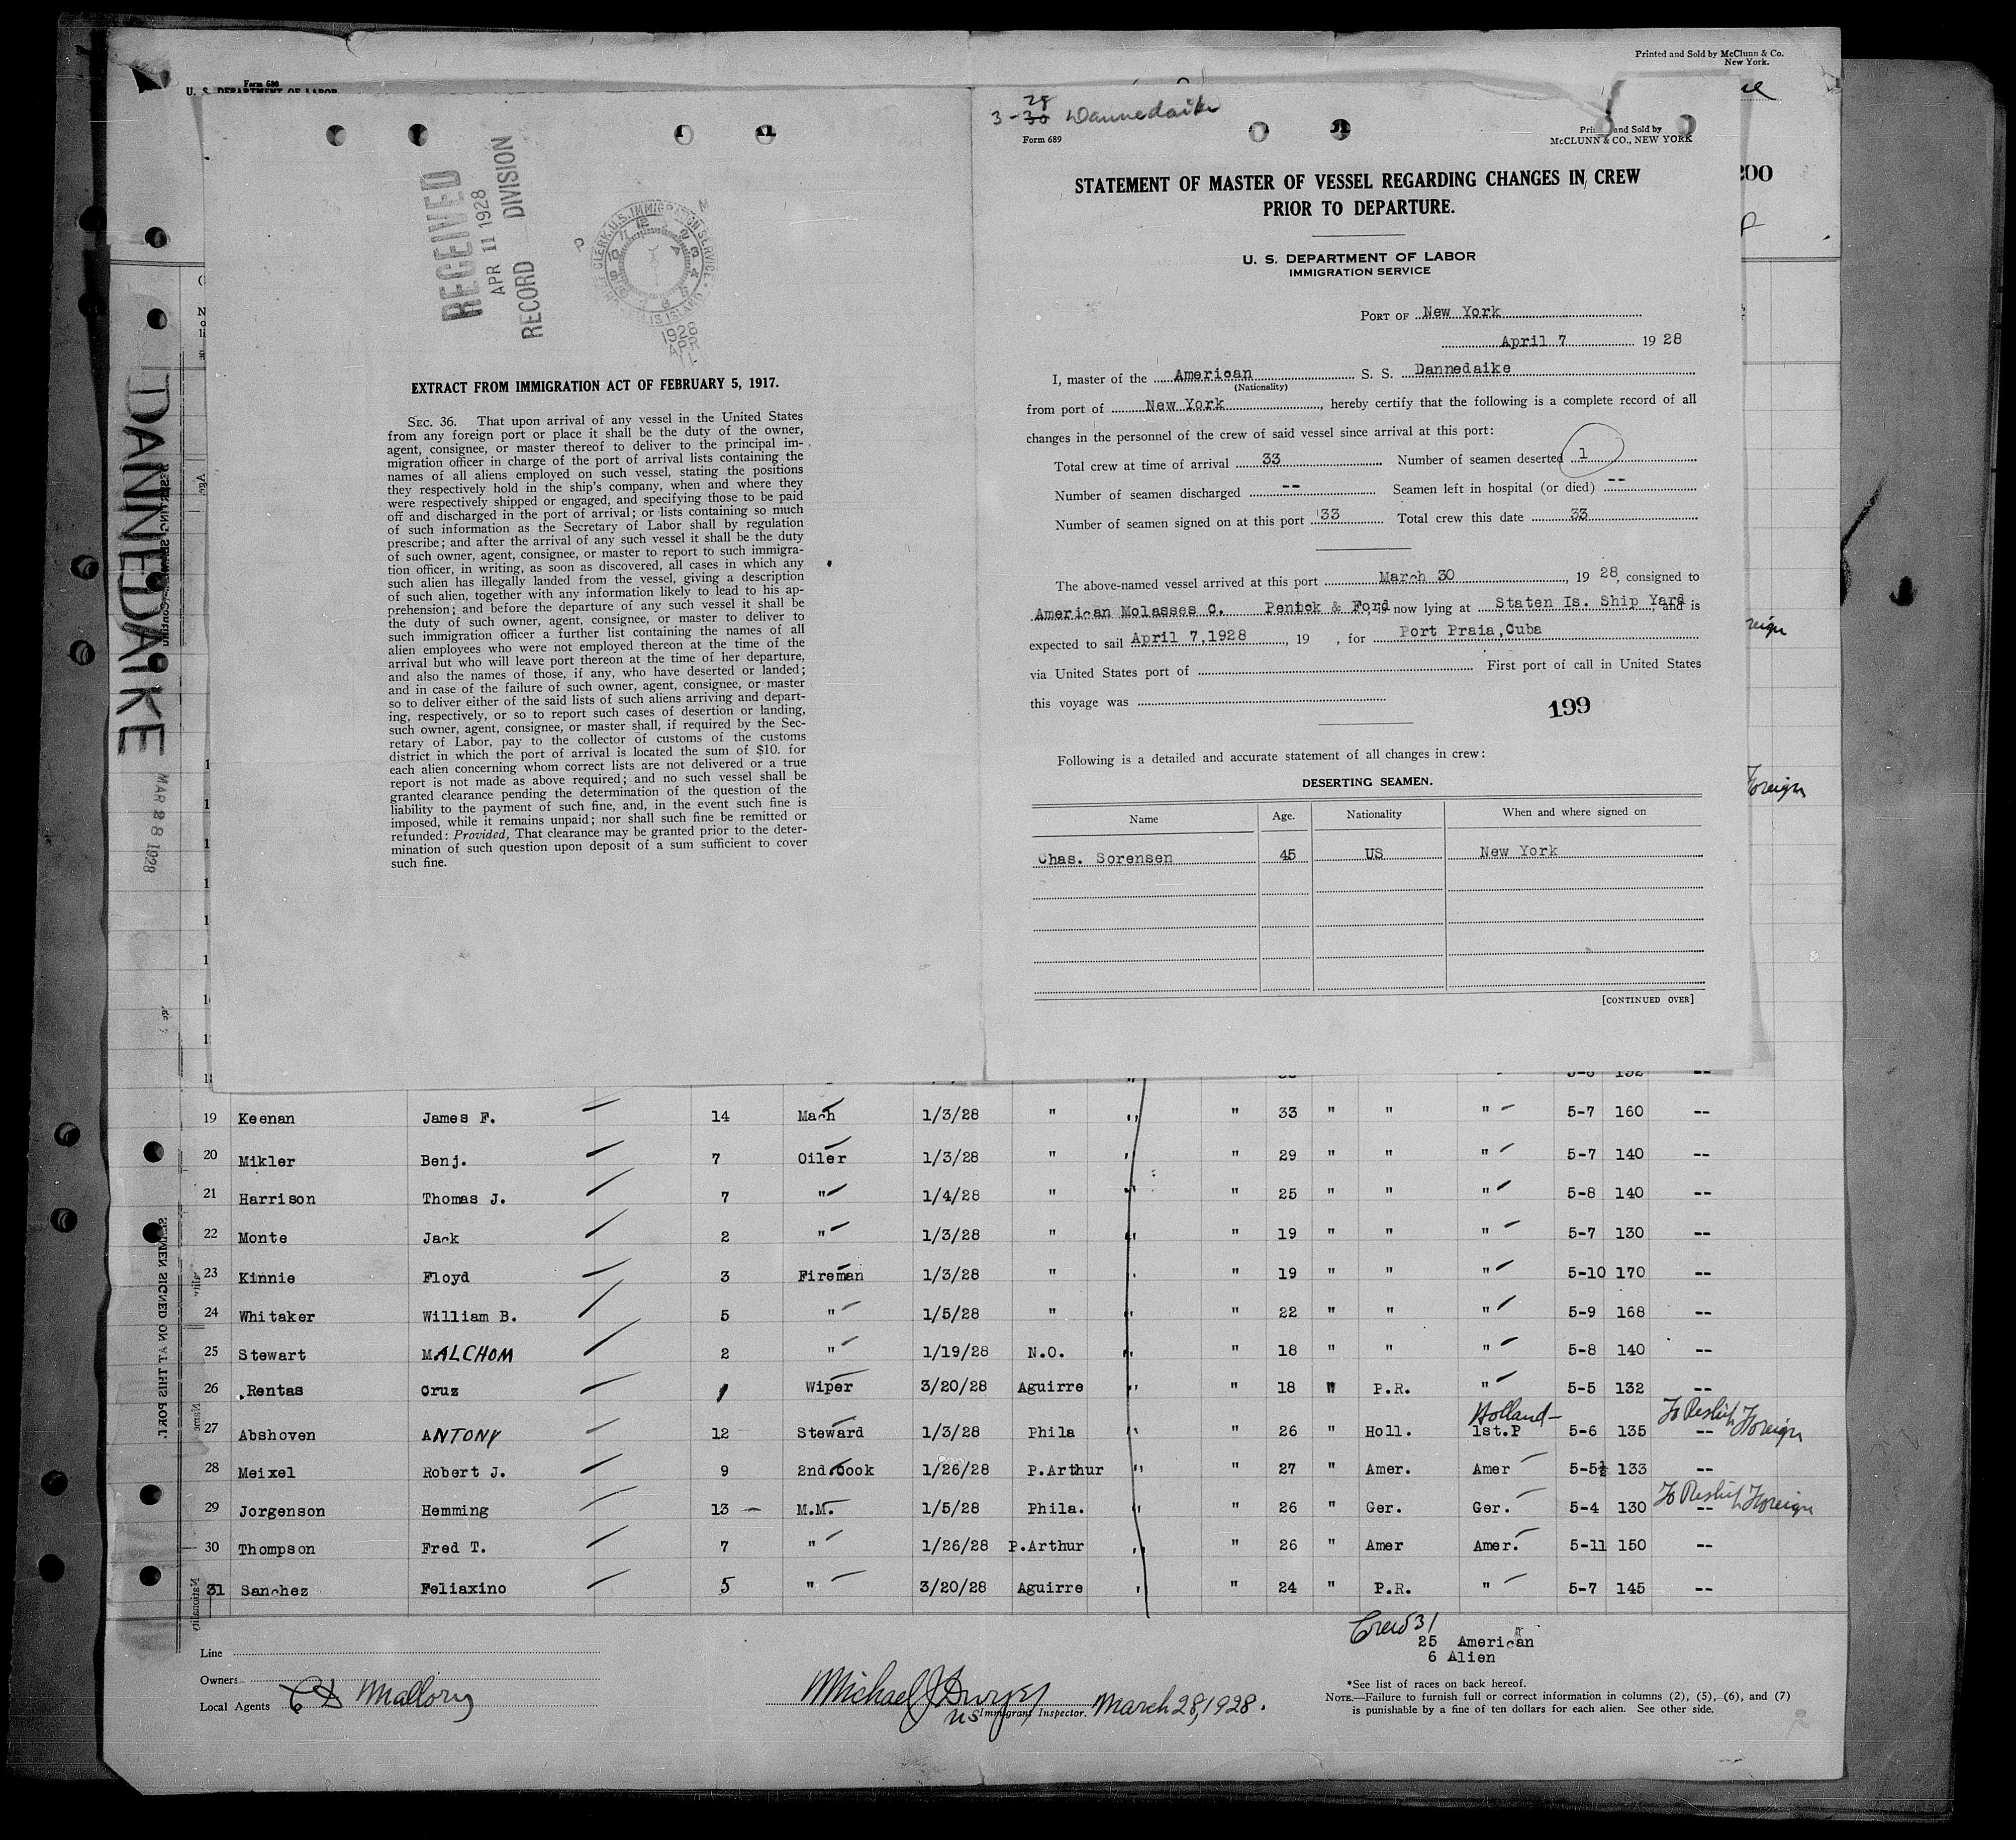 Printed and Sold by McClunn & Co.
New York.
Form 680
U. S. DEPARTMENT OF LABOR
200
DANNEDAIKE
MAR 28 1928
SEAMEN SIGNED ON AT THIS PORT.
RECEIVED
APR 11 1928
RECORD DIVISION
U.S. IMMIGRATION SERVICE
ELLIS ISLAND
1928
EXTRACT FROM IMMIGRATION ACT OF FEBRUARY 5, 1917.
SEC. 36. That upon arrival of any vessel in the United States
from any foreign port or place it shall be the duty of the owner,
agent, consignee, or master thereof to deliver to the principal im-
migration officer in charge of the port of arrival lists containing the
names of all aliens employed on such vessel, stating the positions
they respectively hold in the ship's company, when and where they
were respectively shipped or engaged, and specifying those to be paid
off and discharged in the port of arrival; or lists containing so much
of such information as the Secretary of Labor shall by regulation
prescribe; and after the arrival of any such vessel it shall be the duty
of such owner, agent, consignee, or master to report to such immigra-
tion officer, in writing, as soon as discovered, all cases in which any
such alien has illegally landed from the vessel, giving a description
of such alien, together with any information likely to lead to his ap-
prehension; and before the departure of any such vessel it shall be
the duty of such owner, agent, consignee, or master to deliver to
such immigration officer a further list containing the names of all
alien employees who were not employed thereon at the time of the
arrival but who will leave port thereon at the time of her departure,
and also the names of those, if any, who have deserted or landed;
and in case of the failure of such owner, agent, consignee, or master
so to deliver either of the said lists of such aliens arriving and depart-
ing, respectively, or so to report such cases of desertion or landing,
such owner, agent, consignee, or master shall, if required by the Sec-
retary of Labor, pay to the collector of customs of the customs
district in which the port of arrival is located the sum of $10. for
each alien concerning whom correct lists are not delivered or a true
report is not made as above required; and no such vessel shall be
granted clearance pending the determination of the question of the
liability to the payment of such fine, and, in the event such fine is
imposed, while it remains unpaid; nor shall such fine be remitted or
refunded: Provided, That clearance may be granted prior to the deter-
mination of such question upon deposit of a sum sufficient to cover
such fine.
28
3-30 Dannedaike
Form 689
Printed and Sold by
McCLUNN & CO., NEW YORK
STATEMENT OF MASTER OF VESSEL REGARDING CHANGES IN CREW
PRIOR TO DEPARTURE.
U. S. DEPARTMENT OF LABOR
IMMIGRATION SERVICE
PORT OF New York
April 7 1928
I, master of the American S. S. Dannedaike
(Nationality)
from port of New York, hereby certify that the following is a complete record of all
changes in the personnel of the crew of said vessel since arrival at this port:
Total crew at time of arrival 33 Number of seamen deserted 1
Number of seamen discharged -- Seamen left in hospital (or died) --
Number of seamen signed on at this port 33 Total crew this date 33
The above-named vessel arrived at this port March 30, 1928, consigned to
American Molasses C. Penick & Ford now lying at Staten Is. Ship Yard, and is
expected to sail April 7,1928, 19 , for Port Praia,Cuba
via United States port of First port of call in United States
this voyage was
199
Following is a detailed and accurate statement of all changes in crew:
DESERTING SEAMEN.
Name Age. Nationality When and where signed on
Chas. Sorensen 45 US New York
[CONTINUED OVER]
Foreign
19 Keenan James F. 14 Mach 1/3/28 " " " 33 " " " 5-7 160 --
20 Mikler Benj. 7 Oiler 1/3/28 " " " 29 " " " 5-7 140 --
21 Harrison Thomas J. 7 " 1/4/28 " " " 25 " " " 5-8 140 --
22 Monte Jack 2 " 1/3/28 " " " 19 " " " 5-7 130 --
23 Kinnie Floyd 3 Fireman 1/3/28 " " " 19 " " " 5-10 170 --
24 Whitaker William B. 5 " 1/5/28 " " " 22 " " " 5-9 168 --
25 Stewart MALCHOM 2 " 1/19/28 N.O. " " 18 " " " 5-8 140 --
26 Rentas Cruz 1 Wiper 3/20/28 Aguirre " " 18 " P.R. " 5-5 132 --
Holland - To Reship Foreign
27 Abshoven ANTONY 12 Steward 1/3/28 Phila " " 26 " Holl. 1st.P 5-6 135 --
28 Meixel Robert J. 9 2nd.Cook 1/26/28 P.Arthur " " 27 " Amer. Amer 5-5½ 133 --
29 Jorgenson Hemming 13 - M.M. 1/5/28 Phila. " " 26 " Ger. Ger. 5-4 130 -- To Reship Foreign
30 Thompson Fred T. 7 " 1/26/28 P.Arthur " " 26 " Amer Amer. 5-11 150 --
31 Sanchez Feliaxino 5 " 3/20/28 Aguirre " " 24 " P.R. " 5-7 145 --
Crew 31
25 American
6 Alien
Line
Owners
Local Agents C D Mallory
Michael J Dwyer
US Immigrant Inspector. March 28, 1928.
*See list of races on back hereof.
NOTE.—Failure to furnish full or correct information in columns (2), (5), (6), and (7)
is punishable by a fine of ten dollars for each alien. See other side.